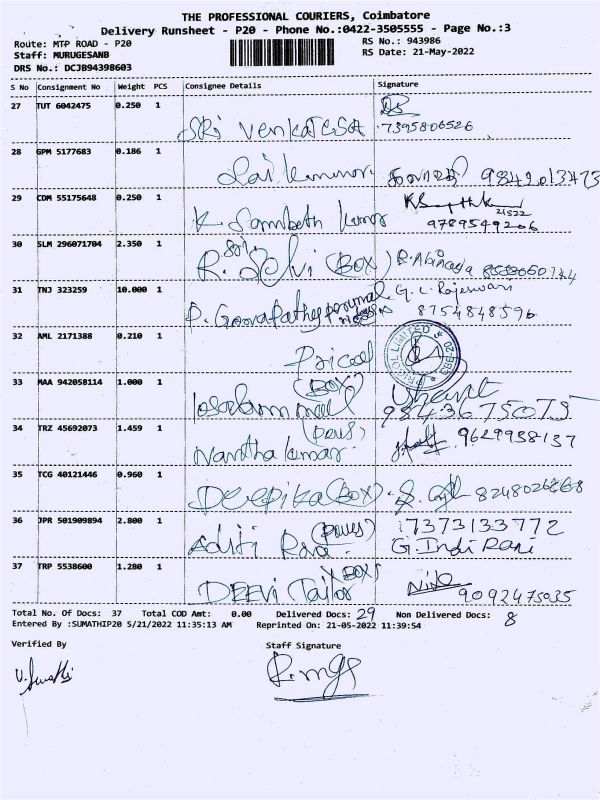 THE PROFESSIONAL COURIERS, Coimbatore
Delivery Runsheet - P20 - Phone No.:0422-3505555 - Page No.:3
Route: MTP ROAD - P20
RS No.: 943986
Staff: MURUGESANB
RS Date: 21-May-2022
DRS No.: DCJB94398603
S No Consignment No Weight PCS Consignee Details Signature
27 TUT 6042475 0.250 1
SRi Venkatesa 7395806526
28 GPM 5177683 0.186 1
9842013473
29 CDM 55175648 0.250 1
K Sambath Kumar
21522
9789549206
30 SLM 296071704 2.350 1
R. Selvi (BOX)
31 TNJ 323259 10.000 1
G. L. Rajeswari
8754848596
32 AML 2171388 0.210 1
Pricol
PRICOL LIMITED
33 MAA 942058114 1.000 1
(BOX)
9843675075
34 TRZ 45692073 1.459 1
Nantha kumar
9629958137
35 TCG 40121446 0.960 1
Deepika (BOX) 8248026868
36 JPR 501909894 2.800 1
Aditi
7373133772
G. Indi Rani
37 TRP 5538600 1.280 1
DEEVI Tailor (BOX)
9092475035
Total No. Of Docs: 37 Total COD Amt: 0.00 Delivered Docs: 29 Non Delivered Docs: 8
Entered By :SUMATHIP20 5/21/2022 11:35:13 AM Reprinted On: 21-05-2022 11:39:54
Verified By Staff Signature